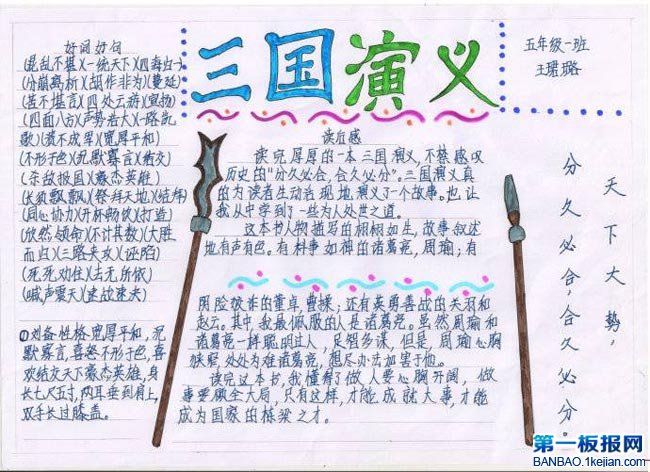 三国演义
五年级一班
王珺璐
好词好句
(混乱不堪)(一统天下)(四海归一)
(分崩离析)(胡作非为)(蔓延)
(苦不堪言)(四处云游)(宣扬)
(四面八方)(声势浩大)(一路凯
歌)(溃不成军)(宽厚平和)
(不形于色)(沉默寡言)(结交)
(杀敌报国)(豪杰英雄)
(长须飘飘)(祭拜天地)(结拜)
(同心协力)(开怀畅饮)(打造)
(欣然领命)(不计其数)(大胜
而归)(三路夹攻)(诬陷)
(死死劝住)(去无所依)
(喊声震天)(速战速决)
①刘备性格宽厚平和，沉
默寡言，喜怒不形于色，喜
欢结交天下豪杰英雄，身
长七尺五寸，两耳垂到肩上，
双手长过膝盖。
读后感
读完厚厚的一本三国演义，不禁感叹
历史的“分久必合，合久必分”。三国演义真
的为读者生动活现地演义了一个故事。也让
我从中学到了一些为人处世之道。
这本书人物描写的栩栩如生，故事叙述
地有声有色。有料事如神的诸葛亮，周瑜；有
阴险狡诈的董卓，曹操；还有英勇善战的关羽和
赵云。其中，我最佩服的人是诸葛亮。虽然周瑜和
诸葛亮一样聪明过人，足智多谋，但是，周瑜心胸
狭窄，处处为难诸葛亮，想尽办法加害于他。
读完这本书，我懂得了做人要心胸开阔，做
事要顾全大局，只有这样，才能成就大事，才能
成为国家的栋梁之才。
天下大势，
分久必合，合久必分。
第一板报网
BANBAO.1kejian.com